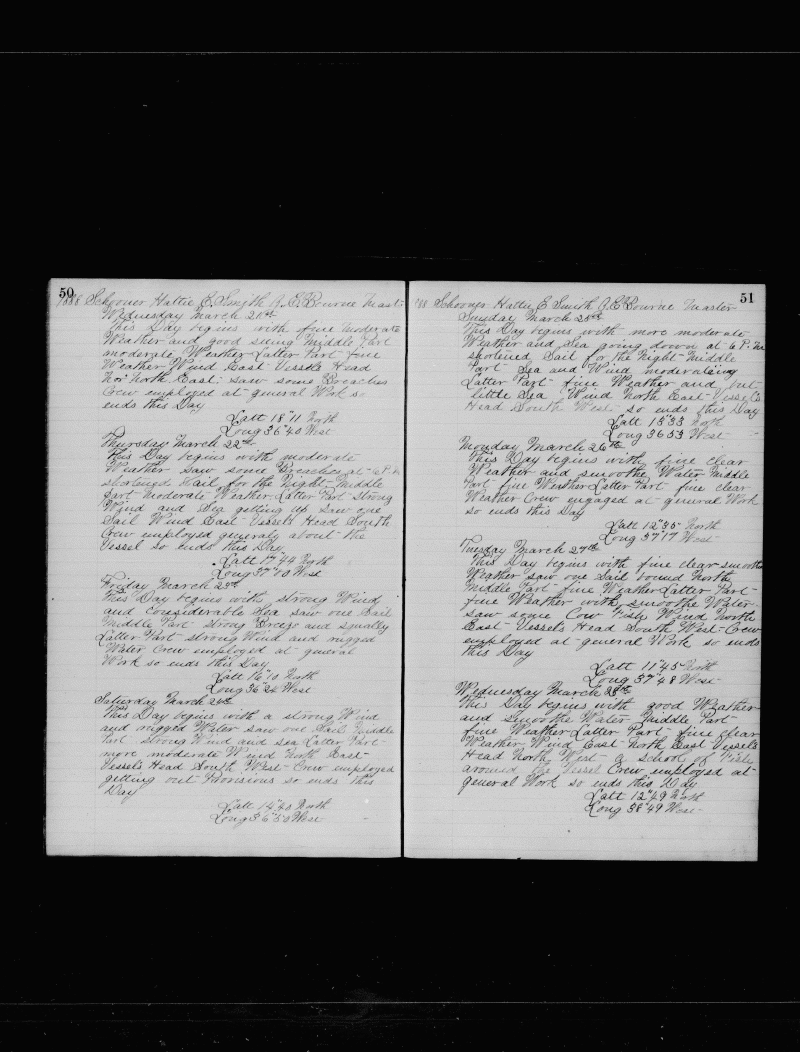 50
1888 Schooner Hattie E. Smith A. E. Bourne Mast:
Wednesday March 21st
This Day begins with fine moderate
Weather and good seeing Middle Part
moderate Weather Latter Part fine
Weather Wind East Vessels Head
Nor North East: saw some Breaches
Crew employed at general Work so
ends this Day
Latt 18"11 North
Long 36"40 West
Thursday March 22nd
This Day begins with moderate
Weather saw some Breaches at 6 P.M
shortened Sail for the Night Middle
part moderate Weather Latter Part strong
Wind and Sea getting up saw one
Sail Wind East Vessels Head South
Crew employed generaly about the
Vessel so ends this Day
Latt 17"44 North
Long 37"10 West
Friday March 23rd
This Day begins with strong Wind
and Considerable Sea saw one Sail
Middle Part strong Breeze and squally
Latter Part strong Wind and rugged
Water Crew employed at general
Work so ends this Day
Latt 16"10 North
Long 36"22 West
Saturday March 24th
This Day begins with a strong Wind
and rugged Water saw one Sail Middle
Part strong Wind and sea Latter Part
more moderate Wind North East
Vessels Head South West Crew employed
getting out Provisions so ends this
Day
Latt 14"40 North
Long 36"50 West
51
188 Schooner Hattie E Smith A. E. Bourne Master
Sunday March 25th
This Day begins with more moderate
Weather and Sea going down at 6 P.M
shortened Sail for the Night Middle
Part Sea and Wind moderateing
Latter Part fine Weather and but
little Sea Wind North East Vessels
Head South West so ends this Day
Latt 13"33 North
Long 36"53 West
Monday March 26th
This Day begins with fine clear
Weather and smoothe Water Middle
Part fine Weather Latter Part fine clear
Weather Crew engaged at general Work
so ends this Day
Latt 12"35 North
Long 37"17 West
Tuesday March 27th
This Day begins with fine clear smooth
Weather saw one Sail bound North
Middle Part fine Weather Latter Part
fine Weather with smoothe Water
saw some Cow Fish Wind North
East Vessels Head South West Crew
employed at general Work so ends
this Day
Latt 11"45 North
Long 37"48 West
Wednesday March 28th
This Day begins with good Weather
and smoothe Water Middle Part
fine Weather Latter Part fine clear
Weather Wind East North East Vessels
Head North West a school of Fish
around the Vessel Crew employed at
general Work so ends this Day
Latt 12"49 North
Long 38"49 West